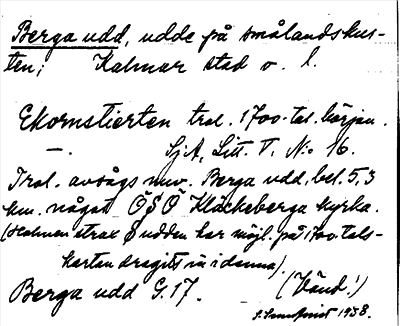 Berga udd, udde på smålandskus-
ten; Kalmar stad o. l.
Ekornstierten trol. 1700-tal. början.
—. SjA, Litt. T. No 16.
Trol. avsågs nuv. Berga udd, bel. 5,3
km. något ÖSÖ Kläckeberga kyrka.
(Holmen strax S udden har möjl. på 1700-tals-
kartan dragits in i denna).
Berga udd G. 17. (Vänd!)
1938.